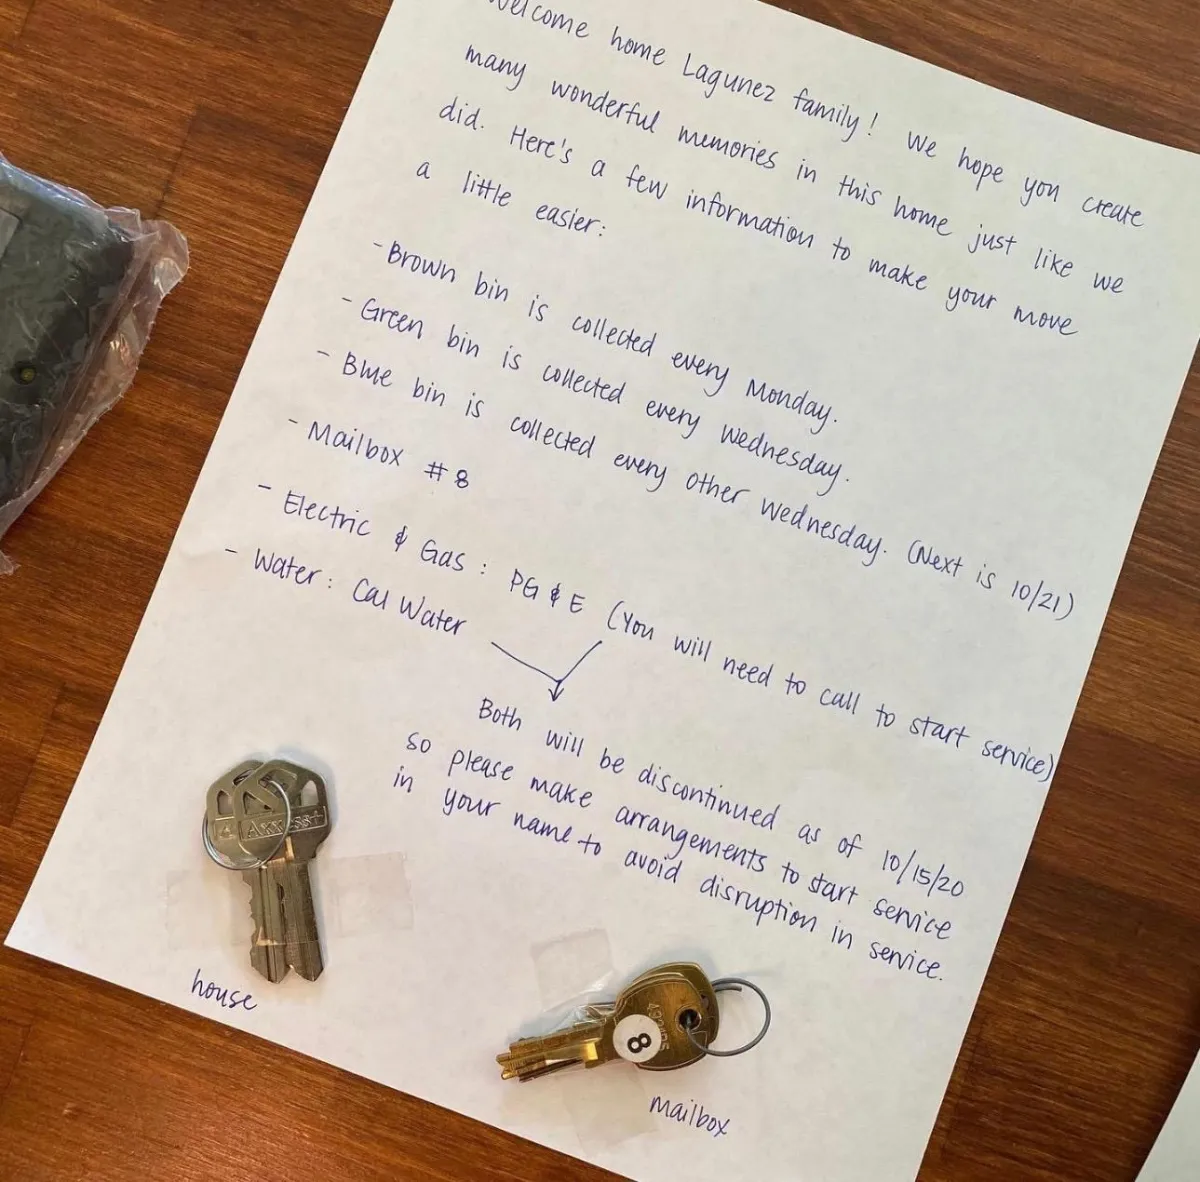 Welcome home Lagunez family! We hope you create
many wonderful memories in this home just like we
did. Here's a few information to make your move
a little easier:
- Brown bin is collected every Monday.
- Green bin is collected every Wednesday.
- Blue bin is collected every other Wednesday. (Next is 10/21)
- Mailbox #8
- Electric & Gas: PG & E (You will need to call to start service)
- Water: Cal Water
Both will be discontinued as of 10/15/20
so please make arrangements to start service
in your name to avoid disruption in service.
house
8
mailbox